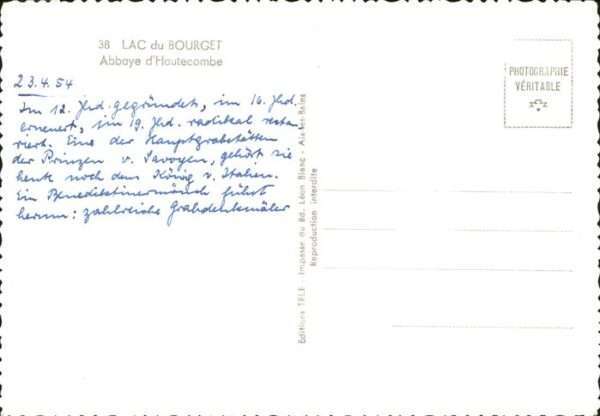 38 LAC du BOURGET
Abbaye d'Hautecombe
23.4.54
Im 12. Jhd. gegründet, im 16. Jhd.
erneuert, im 19. Jhd. radikal restau-
riert. Eine der Hauptgrabstätten
der Prinzen v. Savoyen, gehört sie
heute noch dem König v. Italien.
Ein Benediktinermönch führt
herum: zahlreiche Grabdenkmäler
Editions TELE - Impasse du Bd. Léon Blanc - Aix-les-Bains
Reproduction interdite
PHOTOGRAPHIE
VÉRITABLE